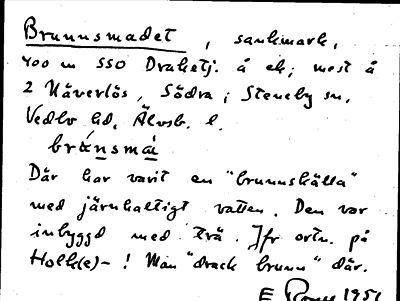 Brunnsmadet, sankmark,
400 m SSO Draketj. å ek; mest å
2 Näverlös, Södra, i Steneby sn,
Vedbo hd, Älvsb. l.
Där har varit en "brunnskälla"
med järnhaltigt vatten. Den var
inbyggd med trä. Jfr ortn. på
Holk(e)- ! Man "drack brunn" där.
E 1951